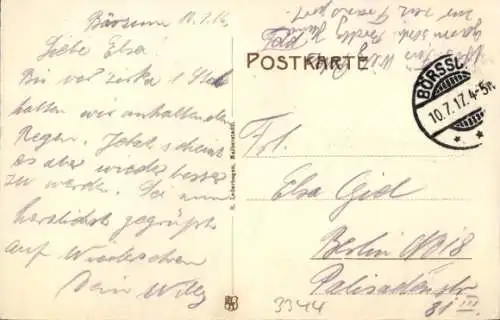 Börssum 10.7.17.
Liebe Elsa!
Bis vor zirka 1 Std.
hatten wir anhaltenden
Regen. Jetzt scheint
es aber wieder besser
zu werden. Sei nun
herzlichst gegrüßt
auf Wiedersehen
Dein Willy
R. Lederbogen, Halberstadt.
POSTKARTE
BÖRSSUM
10.7.17. 4-5N.
Frl.
Elsa Giel
Berlin NO 18
Palisadenstr.
81 III
3344